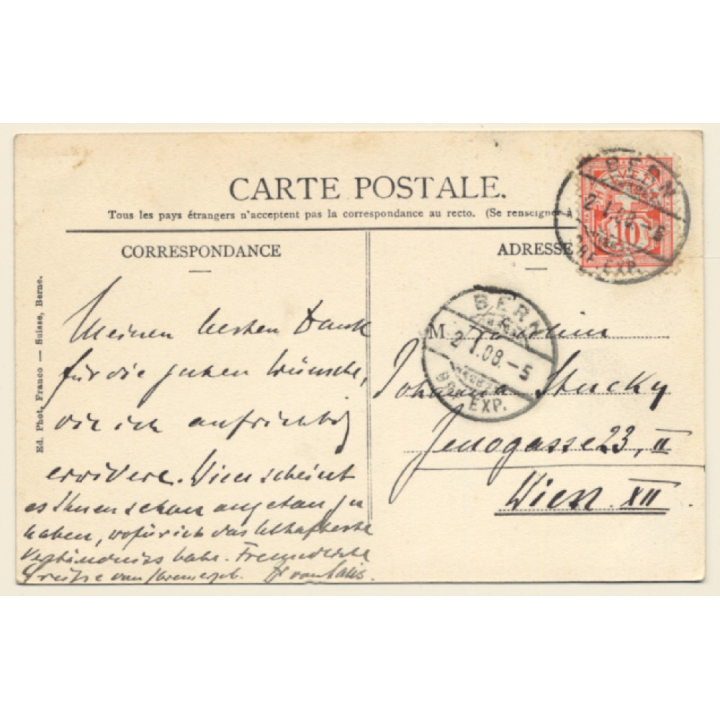 CARTE POSTALE.
Tous les pays étrangers n'acceptent pas la correspondance au recto. (Se renseigne
CORRESPONDANCE
ADRESSE
Ed. Phot. Franco — Suisse, Berne.
BERN
2.I.08.-5
BRF. EXP.
HELVETIA
10
BERN
2.I.08.-5
BRF. EXP.
Meinen besten Dank
für die guten Wünsche,
die ich aufrichtig
erwidere. Wien scheint
es Ihnen schon angetan zu
haben, wofür ich das lebhafteste
Verständniss habe. Freundliche
Grüsse von Ihrem erg.
M. Fräulein
Johanna Stucky
Jenogasse 23, II
Wien XII.